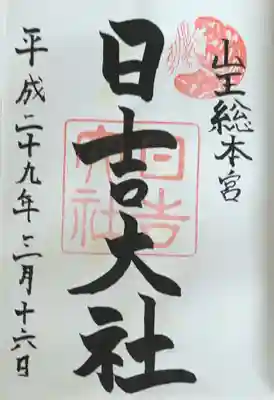 山王総本宮
日吉大社
日吉大社
平成二十九年三月十六日